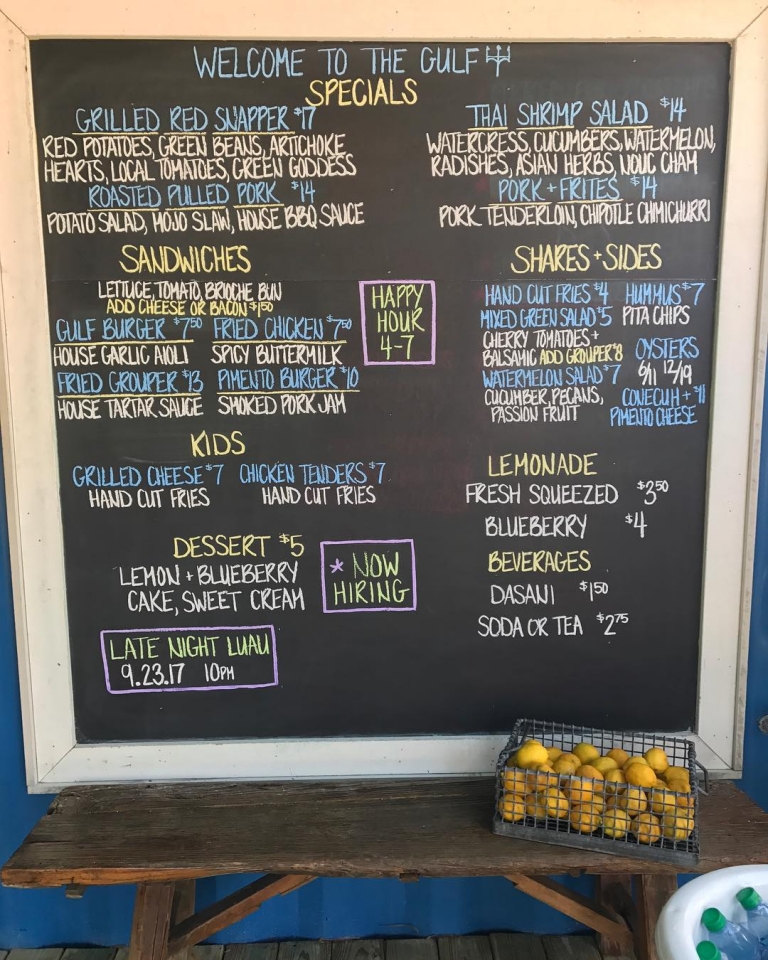 WELCOME TO THE GULF
SPECIALS
GRILLED RED SNAPPER $17
RED POTATOES, GREEN BEANS, ARTICHOKE
HEARTS, LOCAL TOMATOES, GREEN GODDESS
ROASTED PULLED PORK $14
POTATO SALAD, MOJO SLAW, HOUSE BBQ SAUCE
THAI SHRIMP SALAD $14
WATERCRESS, CUCUMBERS, WATERMELON,
RADISHES, ASIAN HERBS, NOUC CHAM
PORK + FRITES $14
PORK TENDERLOIN, CHIPOTLE CHIMICHURRI
SANDWICHES
LETTUCE, TOMATO, BRIOCHE BUN
ADD CHEESE OR BACON $1.50
GULF BURGER $7.50
HOUSE GARLIC AIOLI
FRIED CHICKEN $7.50
SPICY BUTTERMILK
FRIED GROUPER $13
HOUSE TARTAR SAUCE
PIMENTO BURGER $10
SMOKED PORK JAM
HAPPY
HOUR
4-7
SHARES + SIDES
HAND CUT FRIES $4
MIXED GREEN SALAD $5
CHERRY TOMATOES +
BALSAMIC ADD GROUPER $8
WATERMELON SALAD $7
CUCUMBER, PECANS,
PASSION FRUIT
HUMMUS $7
PITA CHIPS
OYSTERS
6/11 12/19
CONECUH + $11
PIMENTO CHEESE
KIDS
GRILLED CHEESE $7
HAND CUT FRIES
CHICKEN TENDERS $7
HAND CUT FRIES
LEMONADE
FRESH SQUEEZED $3.50
BLUEBERRY $4
BEVERAGES
DASANI $1.50
SODA OR TEA $2.75
DESSERT $5
LEMON + BLUEBERRY
CAKE, SWEET CREAM
* NOW
HIRING
LATE NIGHT LUAU
9.23.17 10PM